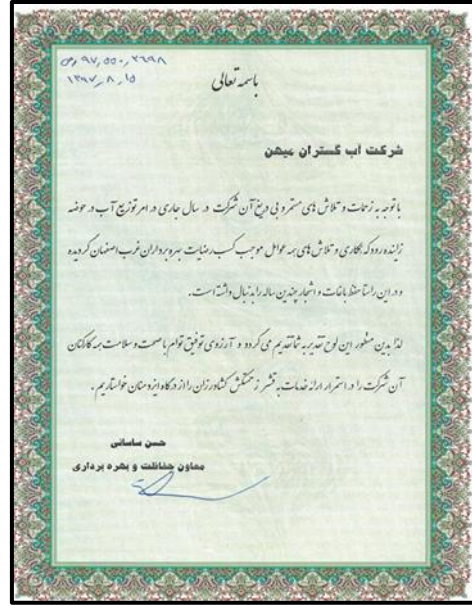 ص/۹۷/۵۵۰/۲۶۹۸
۱۳۹۷/۸/۱۵
باسمه تعالی
شرکت آب گستران میهن
با توجه به زحمات و تلاش های مستمر و بی دریغ آن شرکت در سال جاری در امر توزیع آب در حوضه
زاینده رود که همکاری و تلاش های همه عوامل موجب کسب رضایت بهره برداران غرب اصفهان گردیده
و در این راستا حفظ باغات و اشجار چندین ساله را به دنبال داشته است.
لذا بدین منظور این لوح تقدیر به شما تقدیم می گردد و آرزوی توفیق توام با صحت و سلامت همه کارکنان
آن شرکت را در استمرار ارائه خدمات به قشر زحمتکش کشاورزان را از درگاه ایزد منان خواستاریم.
حسن ساسانی
معاون حفاظت و بهره برداری